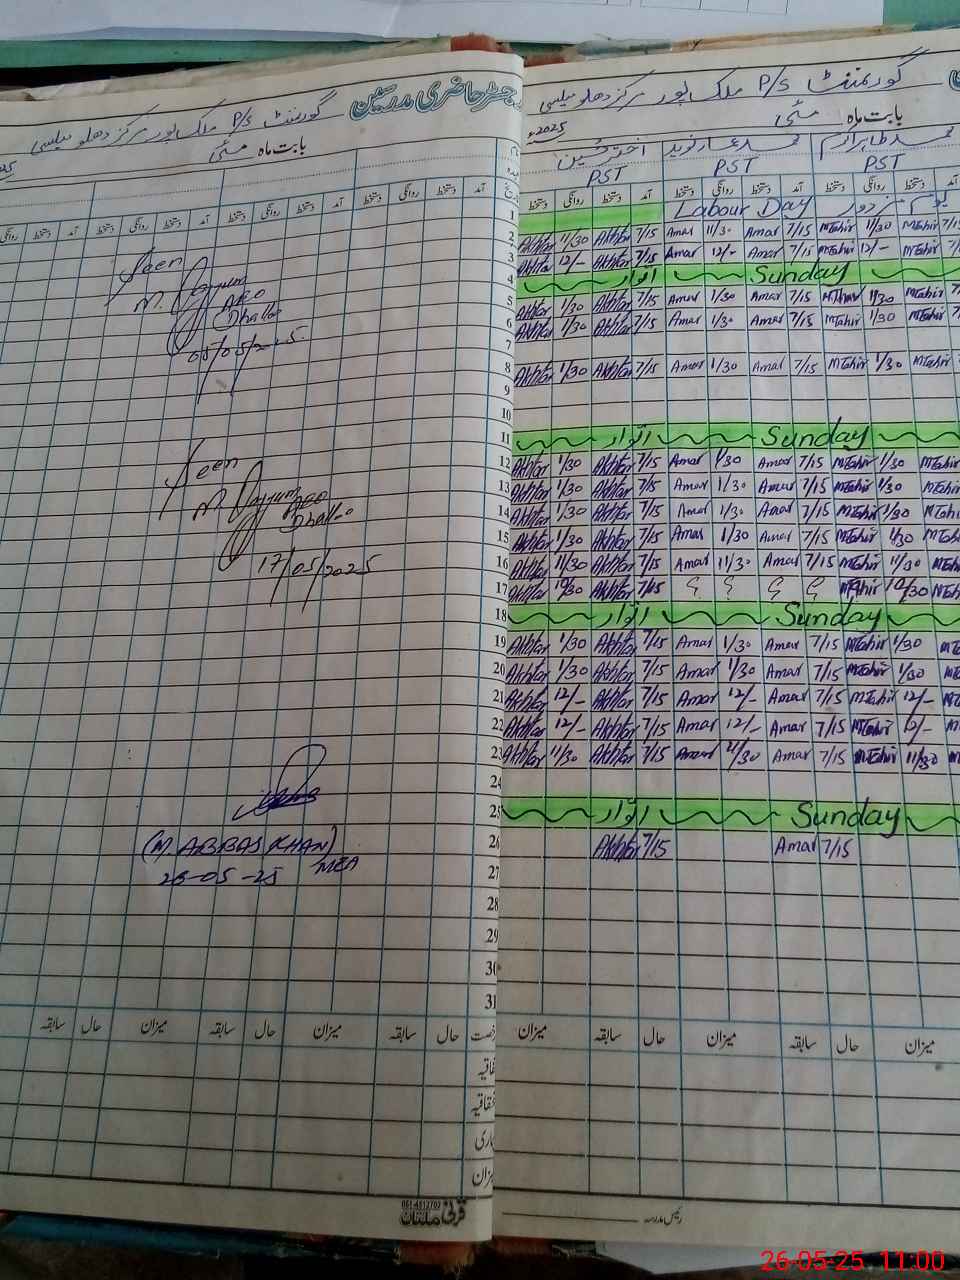 رجسٹر حاضری مدرسین
گورنمنٹ P/S ملک پور مرکز دھلو میلسی
بابت ماہ مئی
آمد دستخط روانگی دستخط آمد دستخط روانگی دستخط آمد دستخط روانگی
Seen
M. Qayyum
AEO
Dhalloo
05/05/2025
Seen
M. Qayyum
AEO
Dhalloo
17/05/2025
(M. ABBAS KHAN)
MEA
26-05-25
1
2
3
4
5
6
7
8
9
10
11
12
13
14
15
16
17
18
19
20
21
22
23
24
25
26
27
28
29
30
31
میزان حال سابقہ میزان حال سابقہ میزان حال سابقہ
میزان
061-4512703
قریشی ملتان
گورنمنٹ P/S ملک پور مرکز دھلو میلسی
بابت ماہ مئی 2025ء
محمد طاہر اکرم محمد عمار نوید اختر حسین
PST PST PST
آمد دستخط روانگی دستخط آمد دستخط روانگی دستخط آمد دستخط روانگی دستخط
Labour Day یوم مزدور
Akhtar 11/30 Akhtar 7/15 Amar 11/30 Amar 7/15 MTahir 11/30 MTahir 7/15
Akhtar 12/- Akhtar 7/15 Amar 12/- Amar 7/15 MTahir 12/- MTahir
اتوار Sunday
Akhtar 1/30 Akhtar 7/15 Amar 1/30 Amar 7/15 MTahir 1/30 MTahir
Akhtar 1/30 Akhtar 7/15 Amar 1/30 Amar 7/15 MTahir 1/30 MTahir
Akhtar 1/30 Akhtar 7/15 Amar 1/30 Amar 7/15 MTahir 1/30 MTahir
اتوار Sunday
Akhtar 1/30 Akhtar 7/15 Amar 1/30 Amar 7/15 MTahir 1/30 MTahi
Akhtar 1/30 Akhtar 7/15 Amar 1/30 Amar 7/15 MTahir 1/30 MTahi
Akhtar 1/30 Akhtar 7/15 Amar 1/30 Amar 7/15 MTahir 1/30 MTahi
Akhtar 1/30 Akhtar 7/15 Amar 1/30 Amar 7/15 MTahir 1/30 MTah
Akhtar 11/30 Akhtar 7/15 Amar 11/30 Amar 7/15 MTahir 11/30 MTah
Akhtar 10/30 Akhtar 7/15 ؟ ؟ ؟ ؟ MTahir 10/30 MTah
اتوار Sunday
Akhtar 1/30 Akhtar 7/15 Amar 1/30 Amar 7/15 MTahir 1/30 MTa
Akhtar 1/30 Akhtar 7/15 Amar 1/30 Amar 7/15 MTahir 1/30 MTa
Akhtar 12/- Akhtar 7/15 Amar 12/- Amar 7/15 MTahir 12/- MT
Akhtar 12/- Akhtar 7/15 Amar 12/- Amar 7/15 MTahir 12/- MT
Akhtar 11/30 Akhtar 7/15 Amar 11/30 Amar 7/15 MTahir 11/30 MT
اتوار Sunday
Akhtar 7/15 Amar 7/15
میزان حال سابقہ میزان حال سابقہ میزان
رئیس مدرسہ
26-05-25 11:00